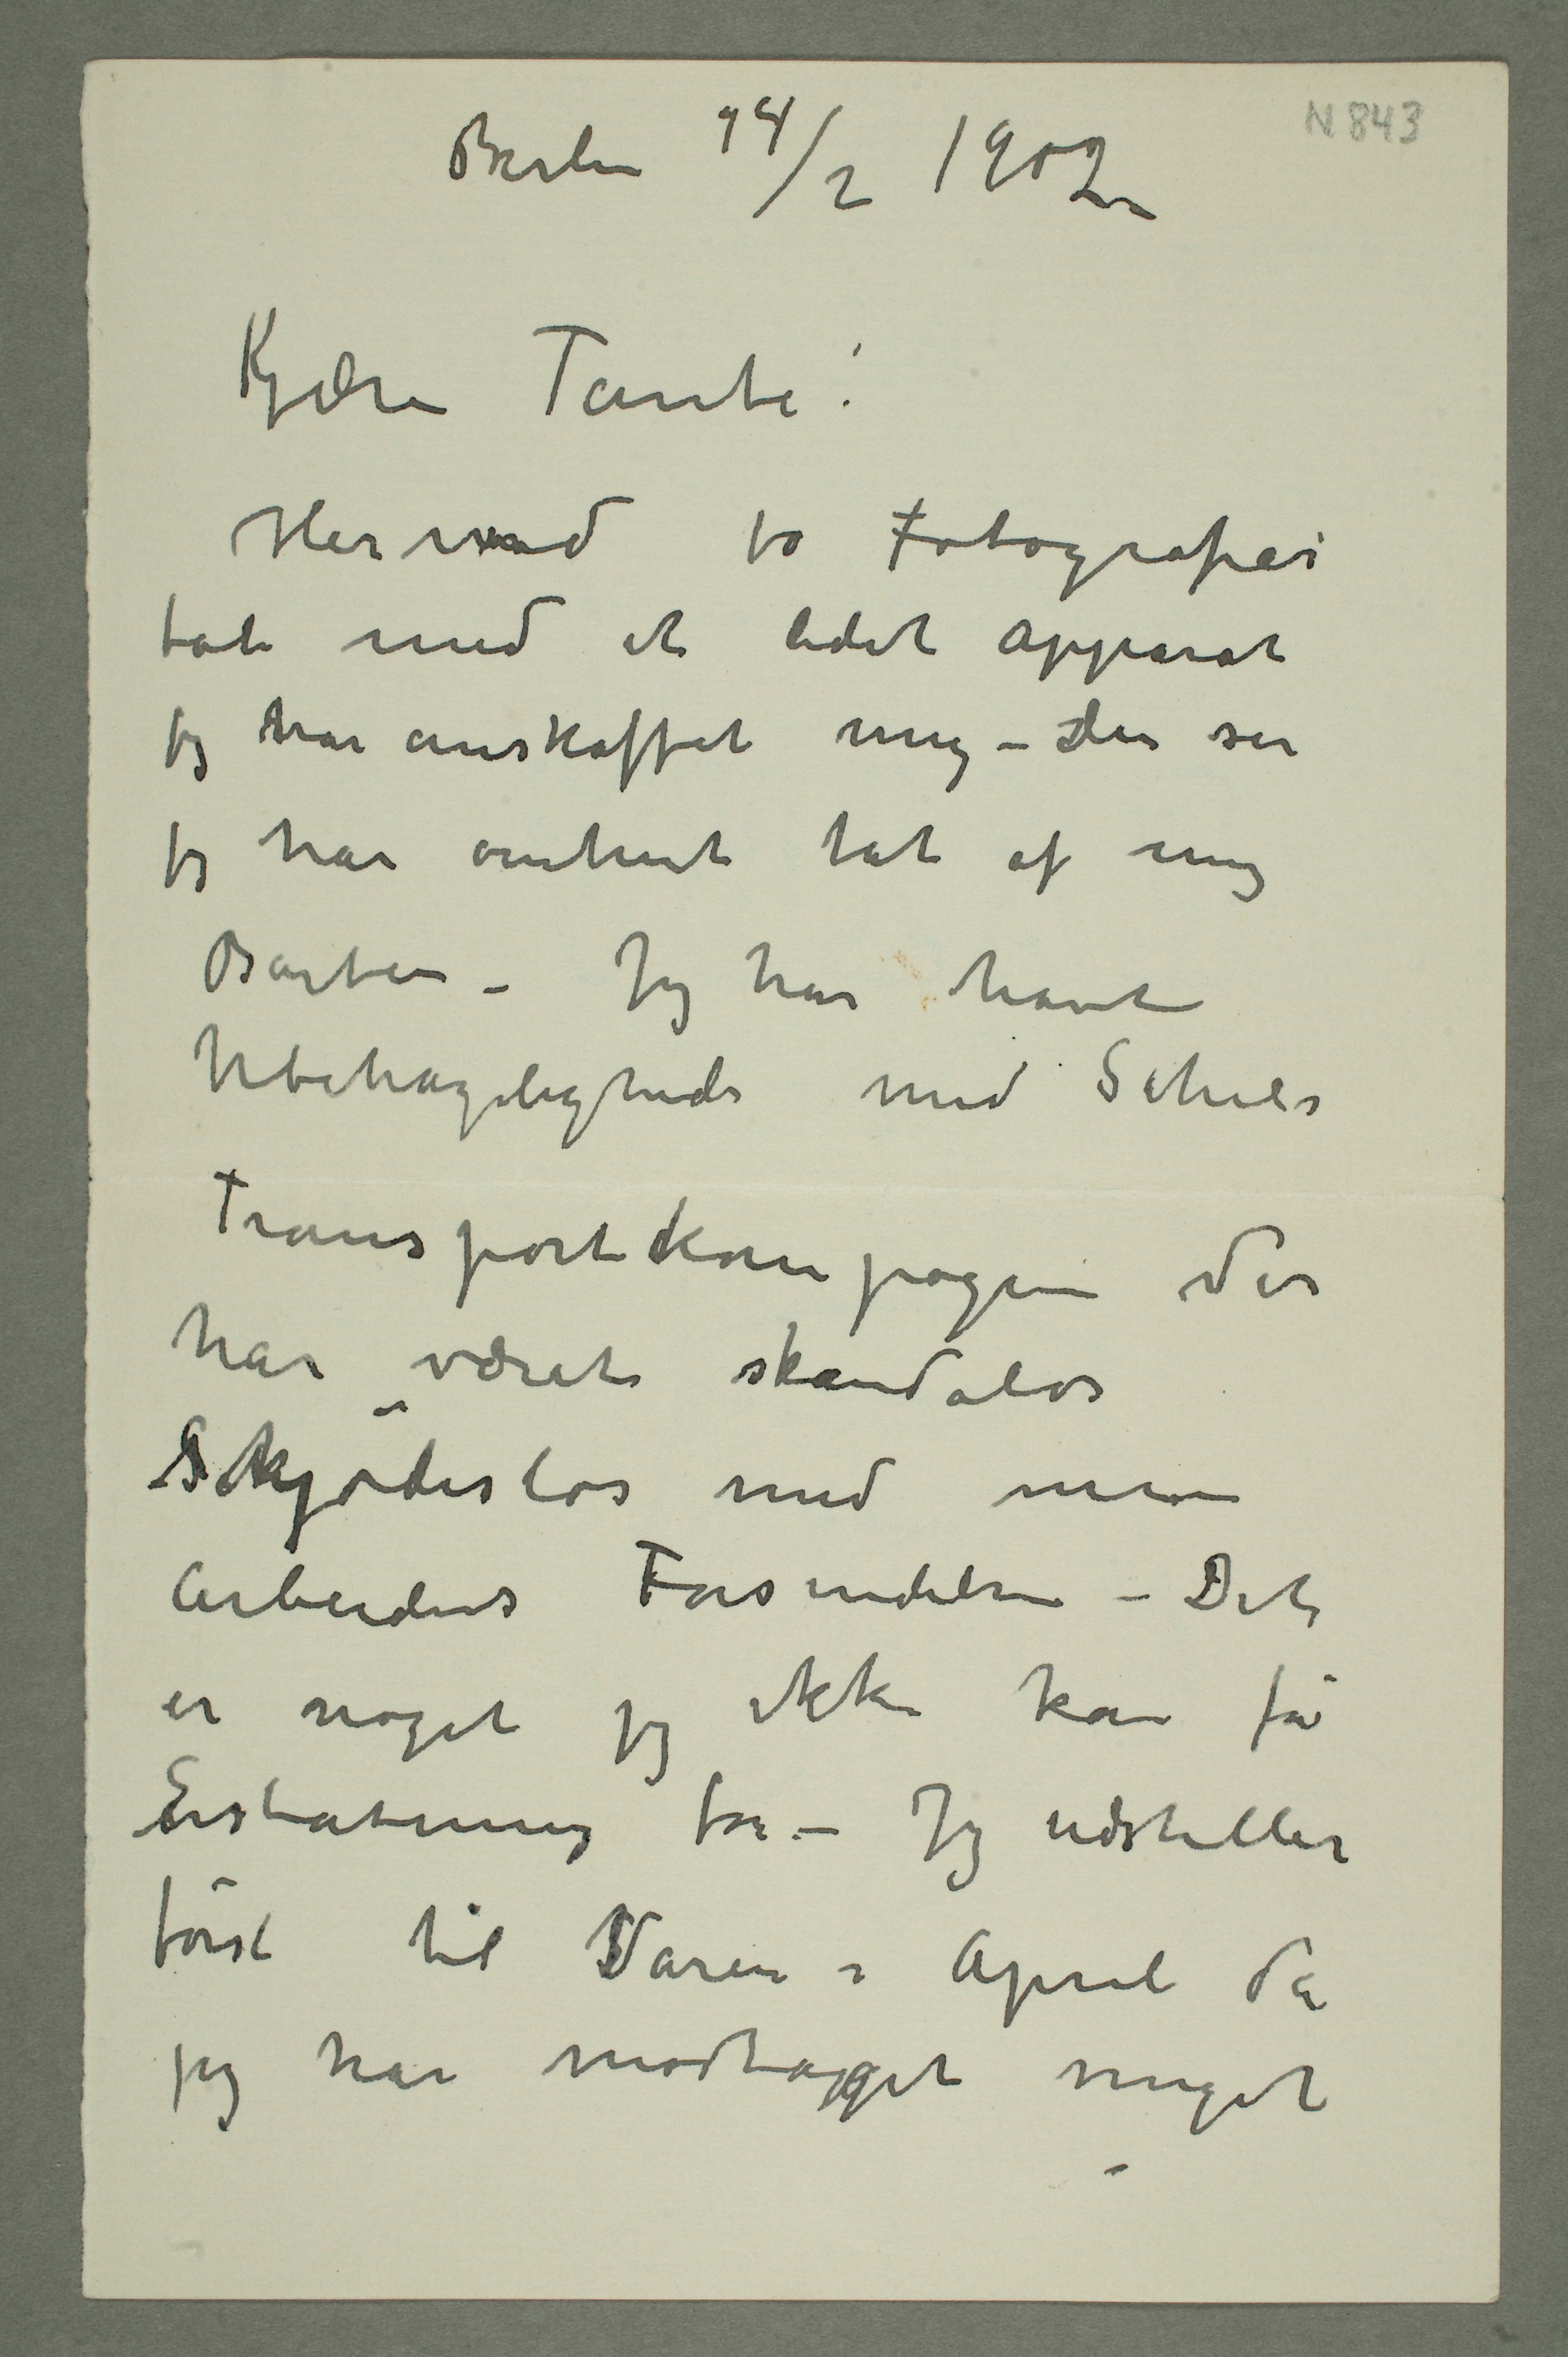 N 843
Berlin 14/2 1902
Kjære Tante!
Hermed to Fotografier
tat med et lidet apparat
jeg har anskaffet mig – Du ser
jeg har omtrent tat af mig
Barten – Jeg har havt
Ubehageligheder med
Transportkompagni der
har været skandaløs
Skjødesløs med mine
Arbeiders Forsendelse – Det
er noget jeg ikke kan få
Erstatning for – Jeg udstiller
først til Våren i April da
jeg har modtaget meget